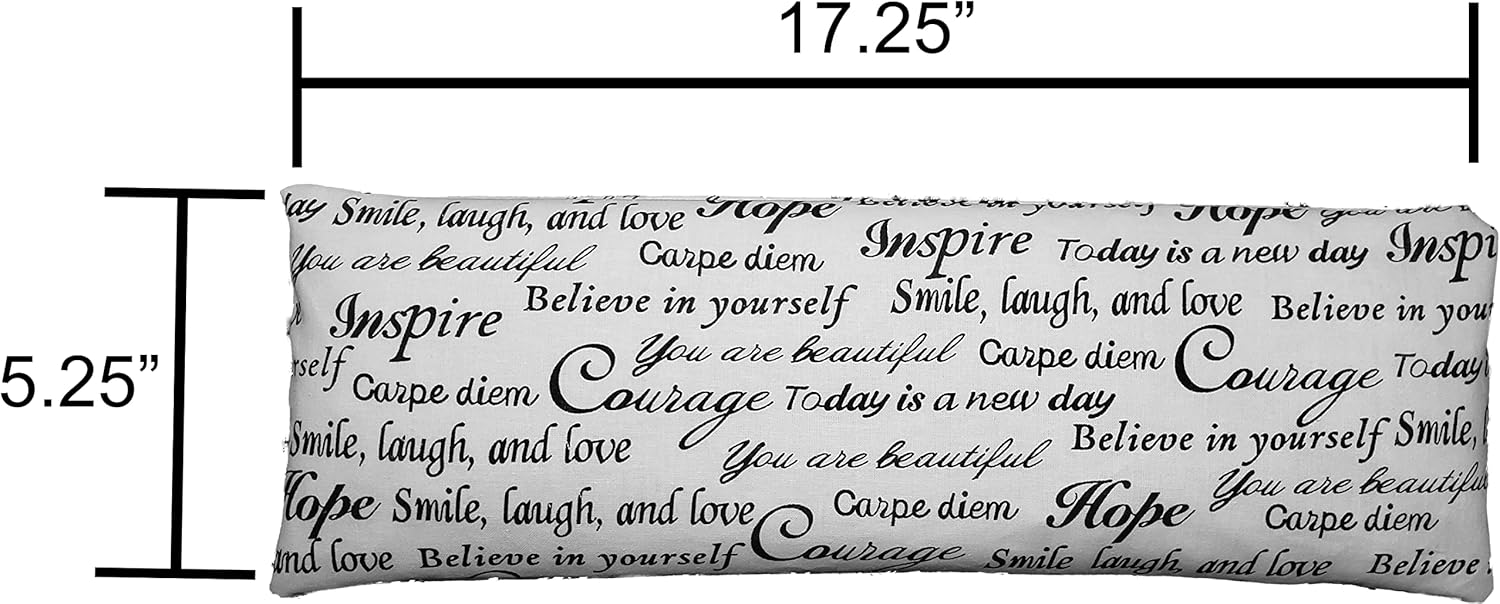 17.25”
5.25”
day Smile, laugh, and love Hope Believe in yourself Hope You are
You are beautiful Carpe diem Inspire Today is a new day Inspi
Inspire Believe in yourself Smile, laugh, and love Believe in your
rself You are beautiful Carpe diem Courage Today i
Carpe diem Courage Today is a new day
Smile, laugh, and love You are beautiful Believe in yourself Smile, l
Hope Smile, laugh, and love Carpe diem Hope You are beautiful
Carpe diem
and love Believe in yourself Courage Smile, laugh, and love Believe